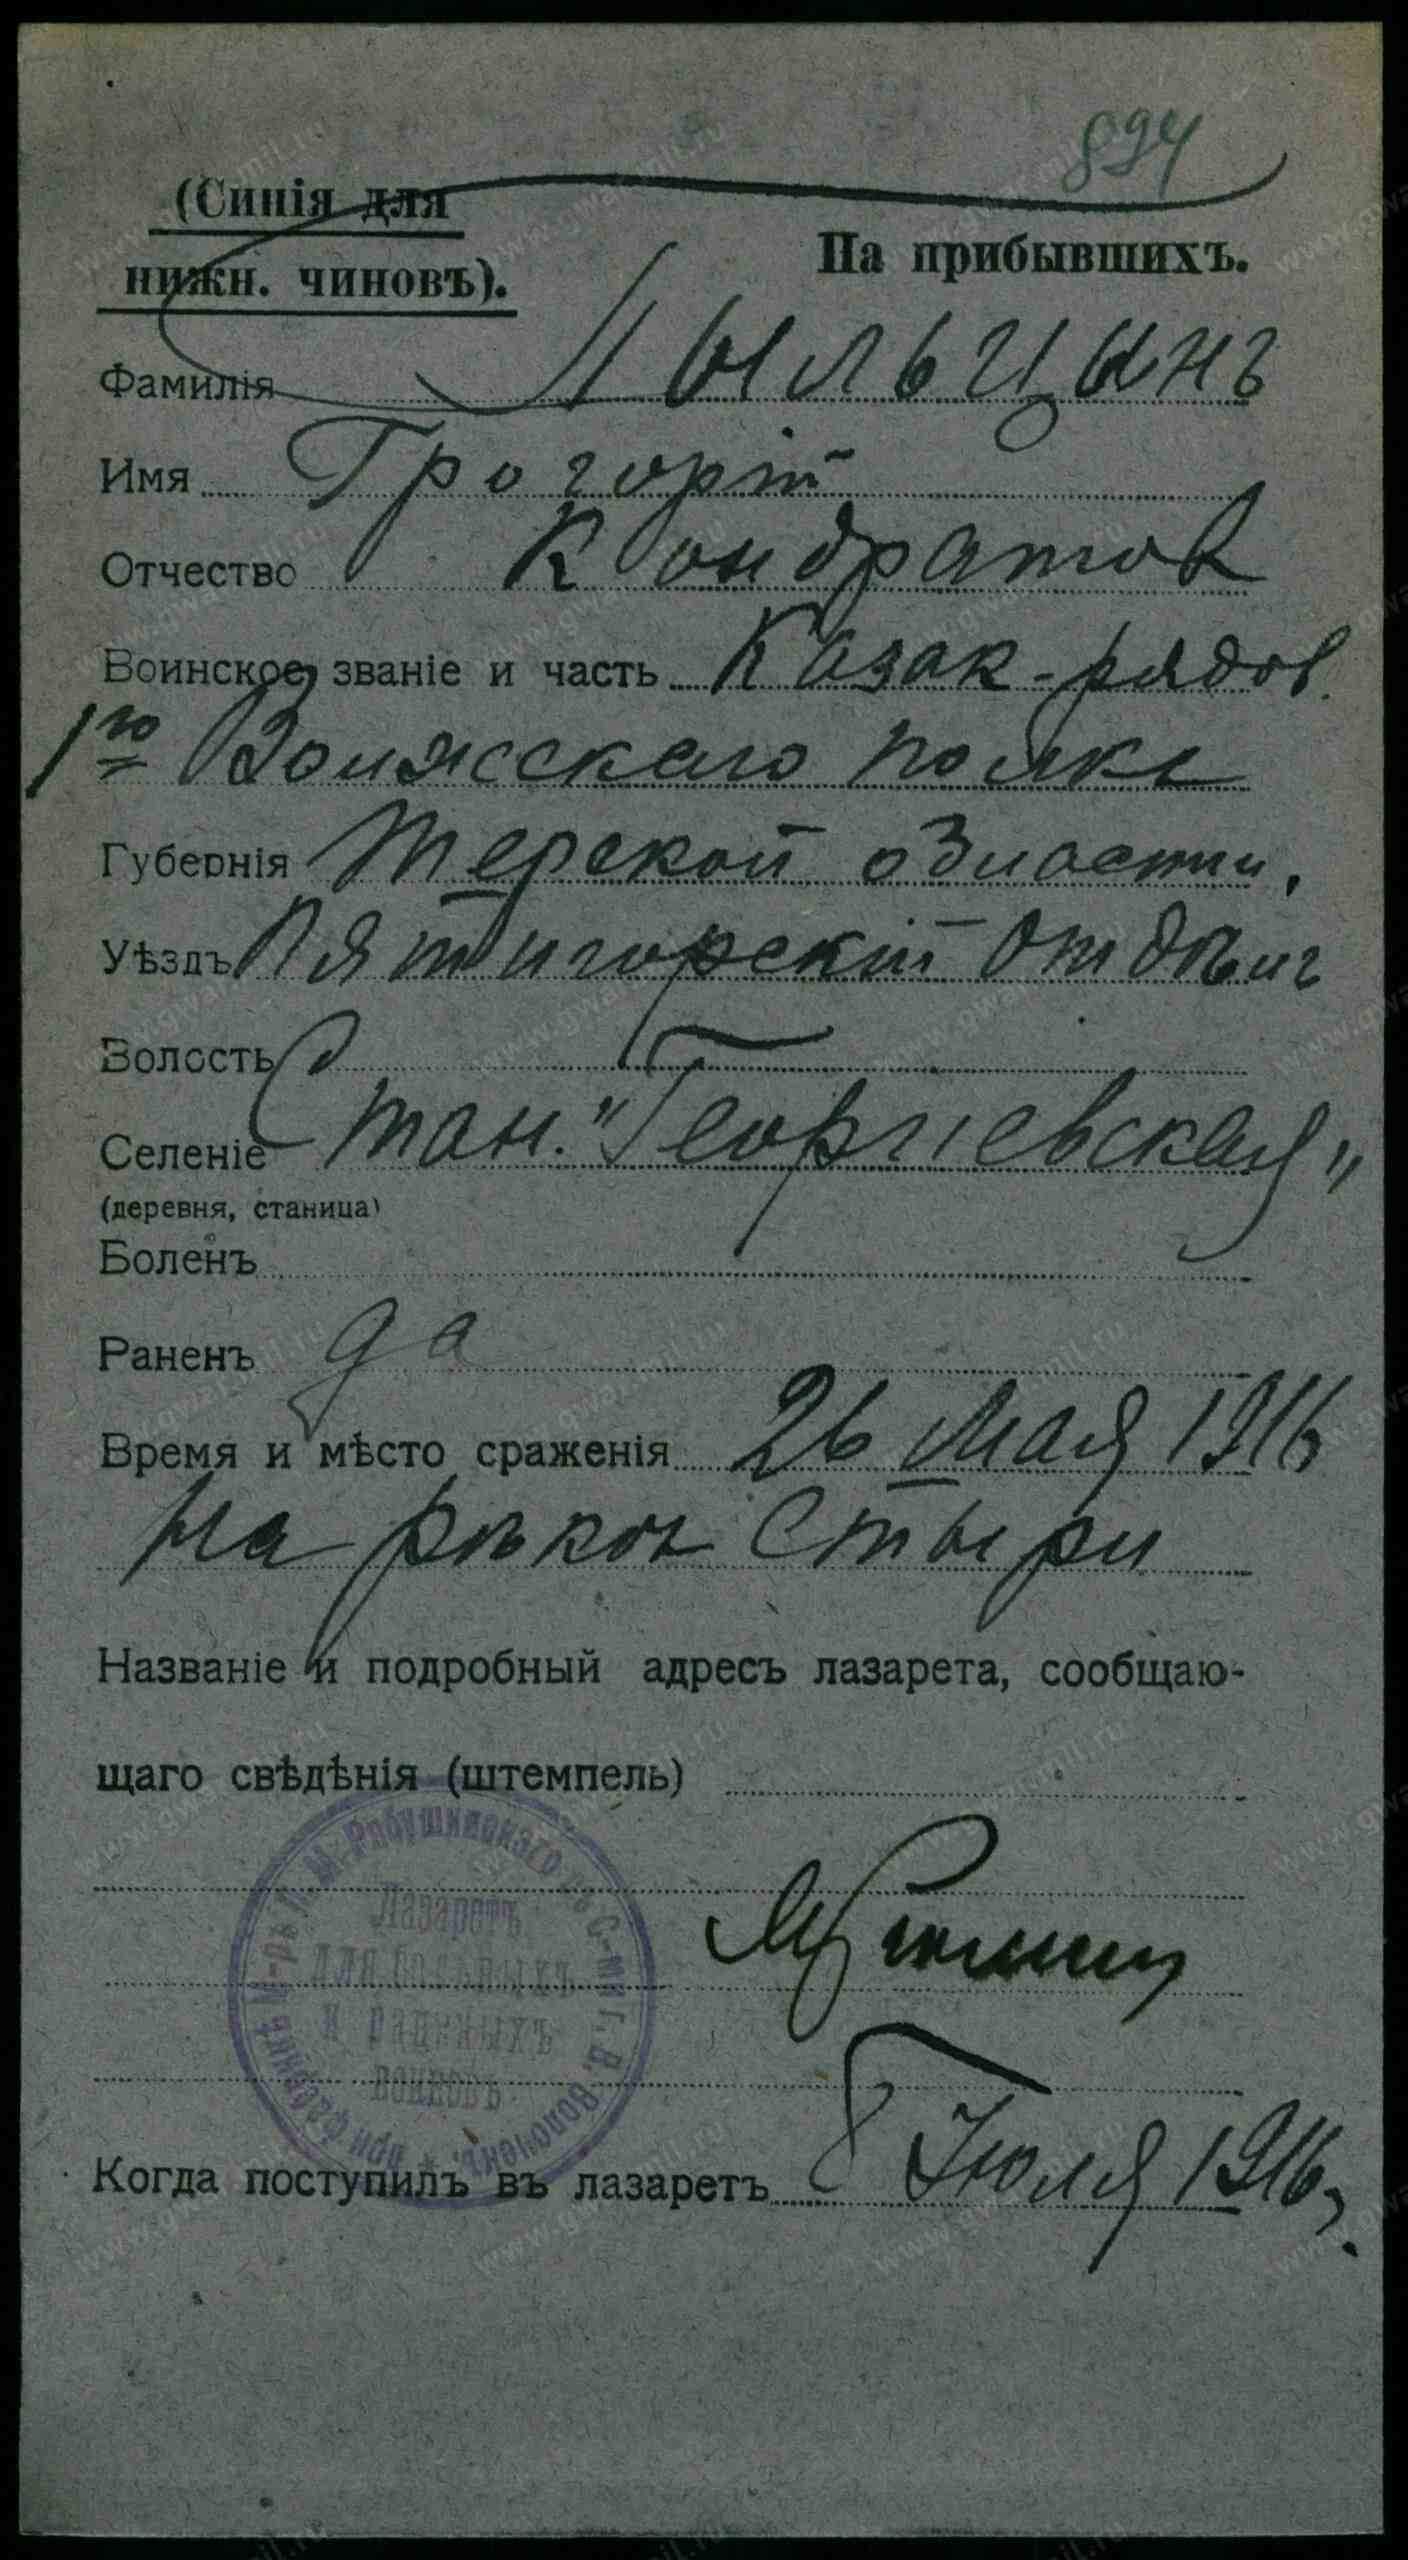 894
(Синія для
нижн. чиновъ).
На прибывшихъ.
Фамилія Лыльцынъ
Имя Грогорій
Отчество Кондратов
Воинское званіе и часть Казак-рядов.
1го Волжскаго полка
Губернія Терской области,
Уѣздъ Пятигорскій отдѣлъ
Волость
Селеніе Стан. "Георгіевская"
(деревня, станица)
Боленъ
Раненъ да
Время и мѣсто сраженія 26 Мая 1916
на рѣкѣ Стыри
Названіе и подробный адресъ лазарета, сообщаю-
щаго свѣдѣнія (штемпель)
при фабрикѣ М. Рябушинскаго С-ми г. В. Волочекъ.
Лазаретъ
для больныхъ
и раненыхъ
воиновъ
Когда поступилъ въ лазаретъ 8 Іюля 1916